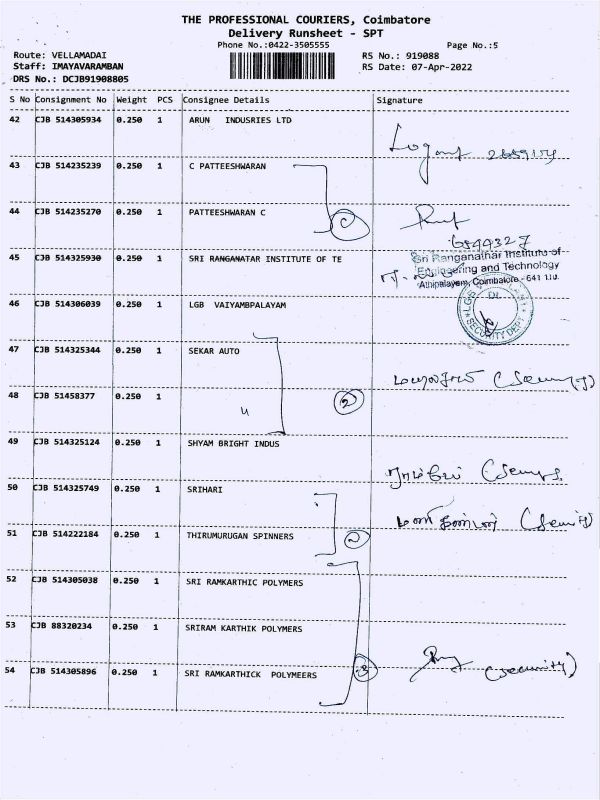 THE PROFESSIONAL COURIERS, Coimbatore
Delivery Runsheet - SPT
Phone No.:0422-3505555
Page No.:5
Route: VELLAMADAI
RS No.: 919088
Staff: IMAYAVARAMBAN
RS Date: 07-Apr-2022
DRS No.: DCJB91908805
S No Consignment No Weight PCS Consignee Details Signature
42 CJB 514305934 0.250 1 ARUN INDUSRIES LTD
43 CJB 514235239 0.250 1 C PATTEESHWARAN
44 CJB 514235270 0.250 1 PATTEESHWARAN C
6544327
45 CJB 514325930 0.250 1 SRI RANGANATAR INSTITUTE OF TE
Sri Ranganathar Institute of
Engineering and Technology
Athipalayam, Coimbatore - 641 110.
46 CJB 514306039 0.250 1 LGB VAIYAMBPALAYAM
LGB
SECURITY DEPT
47 CJB 514325344 0.250 1 SEKAR AUTO
48 CJB 51458377 0.250 1 "
2
49 CJB 514325124 0.250 1 SHYAM BRIGHT INDUS
50 CJB 514325749 0.250 1 SRIHARI
51 CJB 514222184 0.250 1 THIRUMURUGAN SPINNERS
2
52 CJB 514305038 0.250 1 SRI RAMKARTHIC POLYMERS
53 CJB 88320234 0.250 1 SRIRAM KARTHIK POLYMERS
54 CJB 514305896 0.250 1 SRI RAMKARTHICK POLYMEERS
3
(security)